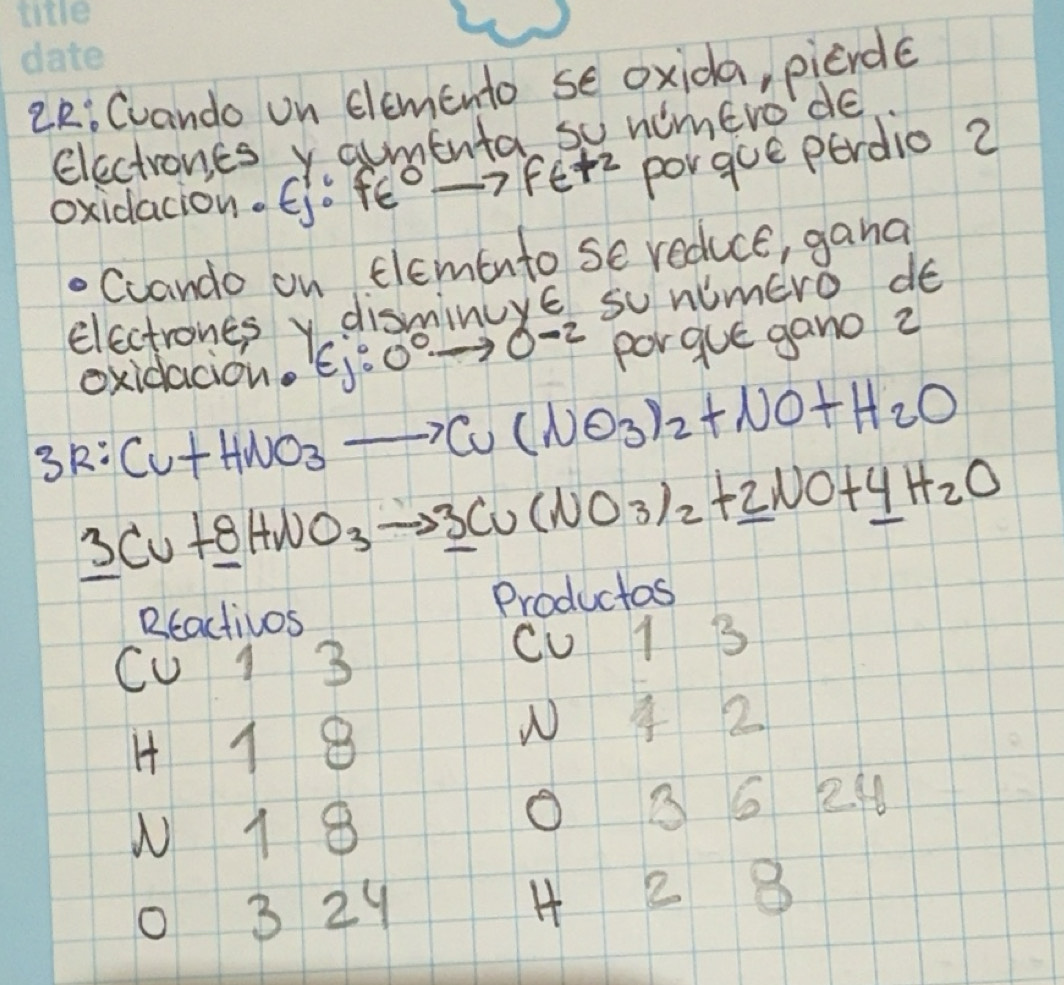 title
date
2R: Cuando un elemento se oxida, pierde
electrones y aumenta su número de
oxidacion. Ej: Fe⁰ → Fe⁺² porque perdio 2
• Cuando un elemento se reduce, gana
electrones y disminuye su número de
oxidación. Ej: O⁰ → O⁻² porque gano 2
3R: Cu + HNO₃ → Cu(NO₃)₂ + NO + H₂O
3Cu + 8HNO₃ → 3Cu(NO₃)₂ + 2NO + 4H₂O
Reactivos Productos
Cu 1 3 Cu 1 3
H 1 8 N 1 2
N 1 8 O 3 6 24
O 3 24 H 2 8